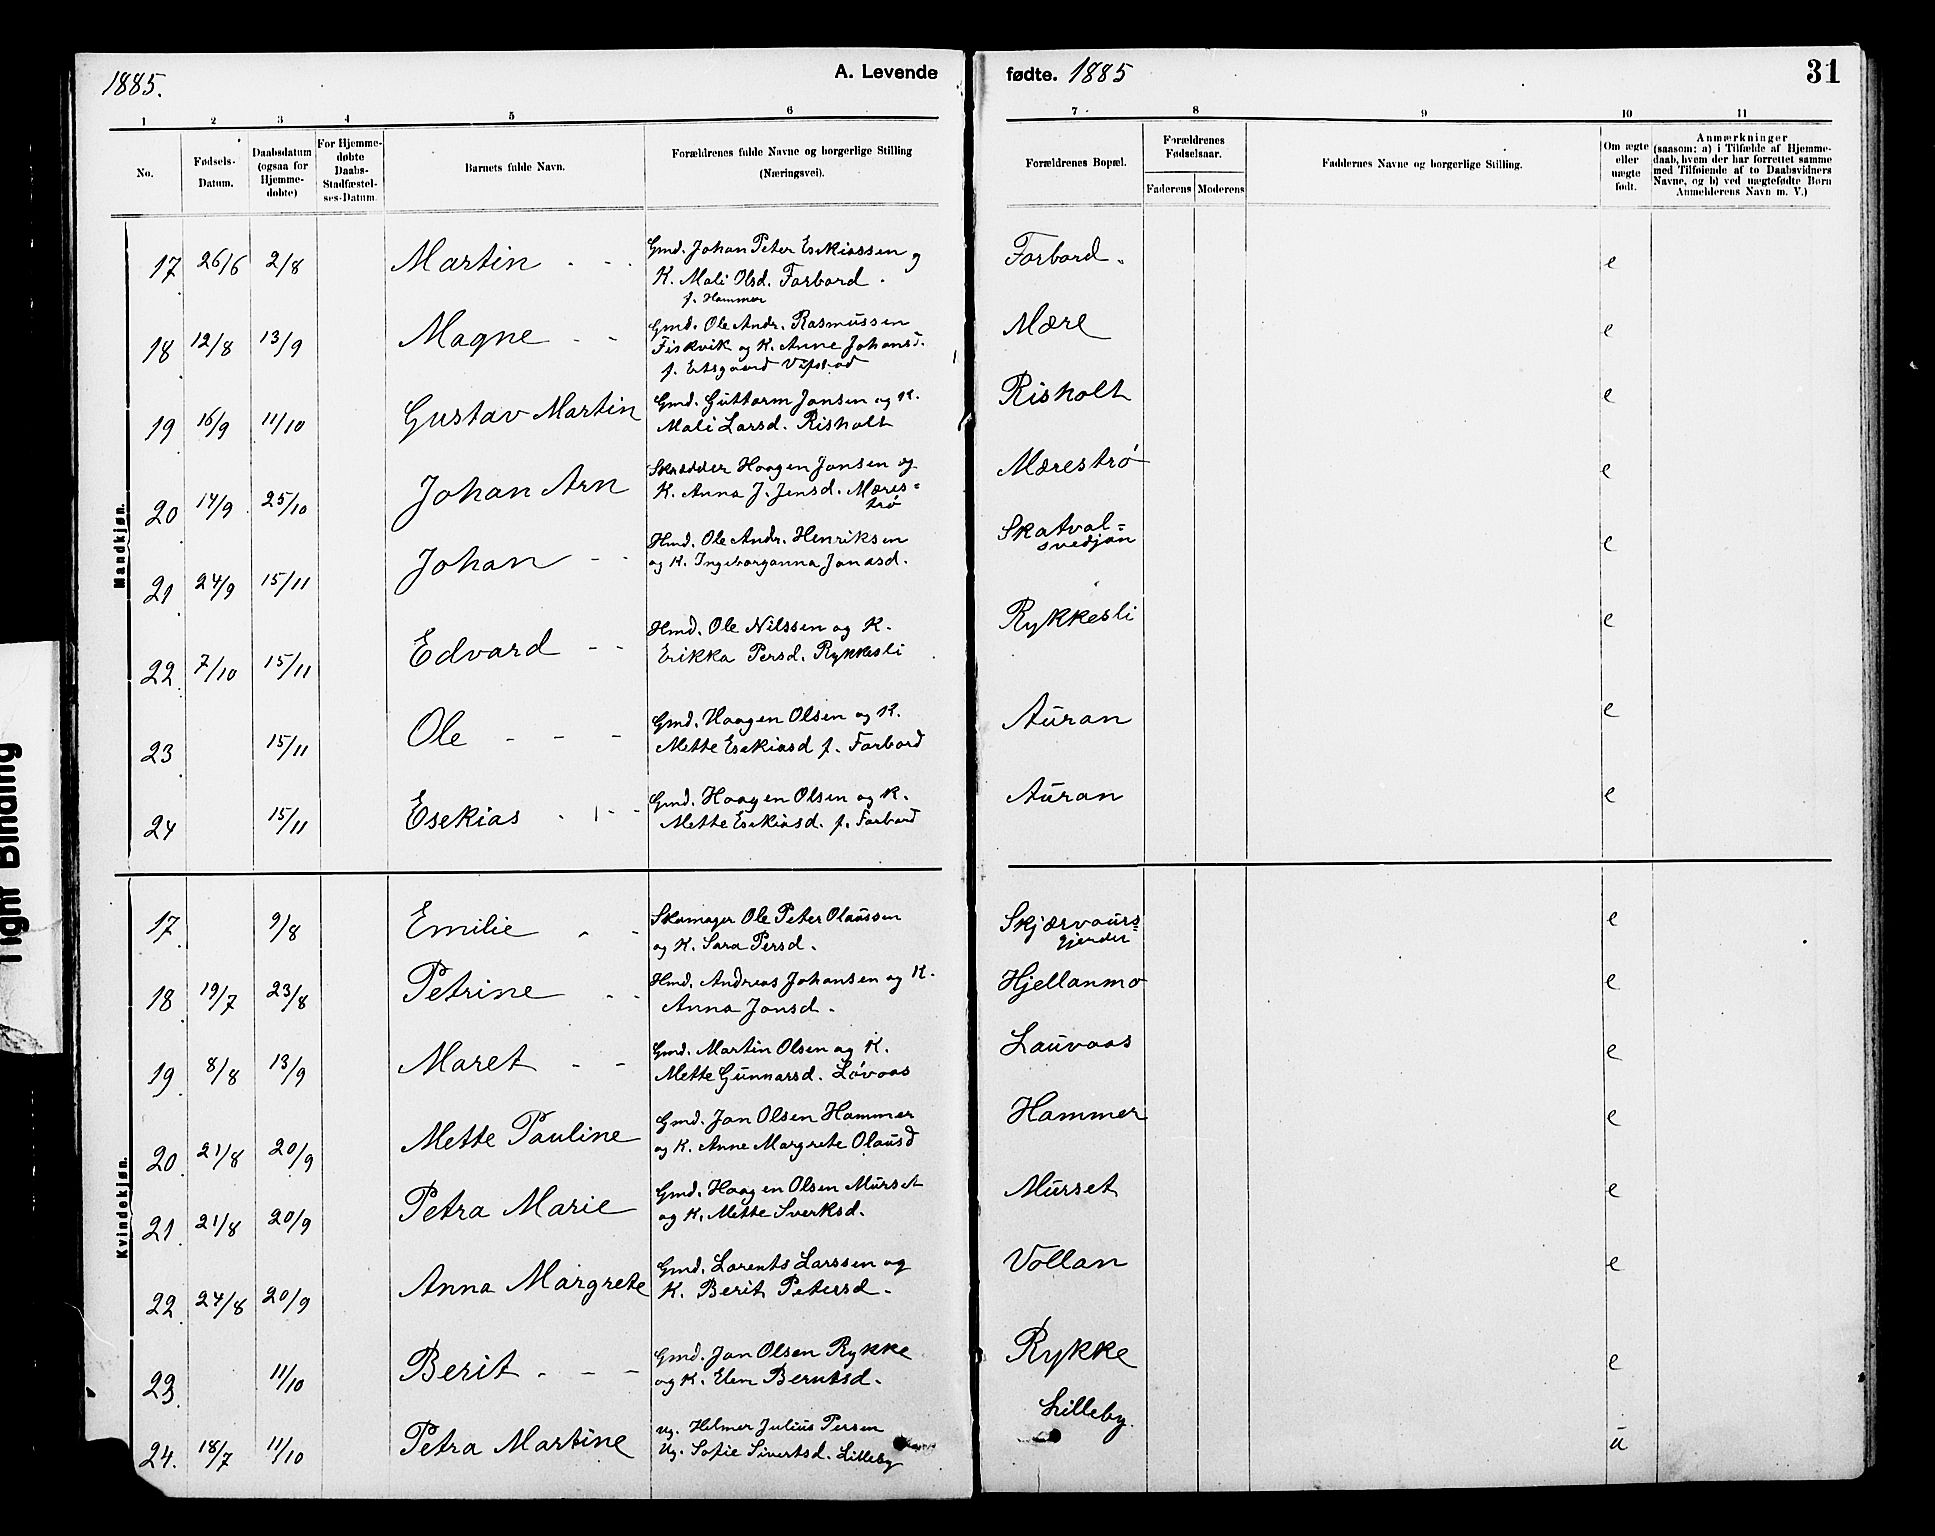 1885.
A. Levende
fødte. 1885
31
1 2 3 4 5 6 7 8 9 10 11
No.
Fødsels-
Datum.
Daabsdatum
(ogsaa for
Hjemme-
døbte)
For Hjemme-
døbte
Daabs-
Stadfæstel-
ses-Datum.
Barnets fulde Navn.
Forældrenes fulde Navne og borgerlige Stilling
(Næringsvei).
Forældrenes Bopæl.
Forældrenes
Fødselsaar.
Faderens Moderens
Faddernes Navne og borgerlige Stilling.
Om ægte
eller
uægte
født.
Anmærkninger
(saasom: a) i Tilfælde af Hjemme-
daab, hvem der har forrettet samme
med Tilføiende af to Daabsvidners
Navne, og b) ved uægtefødte Børn
Anmelderens Navn m. V.)
Mandkjøn.
17 26/6 2/8 Martin - - Gmd. Johan Peter Esekiassen og
K. Mali Olsd. Forbord.
f. Hammer
Forbord. e
18 12/8 13/9 Magne - - Gmd. Ole Andr. Rasmussen
Fiskvik og K. Anne Johansd.
f.
Mære e
19 16/9 11/10 Gustav Martin Gmd. Guttorm Jonsen og K.
Mali Larsd. Risholt
Risholt e
20 14/9 25/10 Johan Arn Skrædder Haagen Jonsen og
K. Anna J. Jensd. Mæres=
trø
Mærestrø e
21 24/9 15/11 Johan - - Hmd. Ole Andr. Henriksen
og K. Ingeborganna Jonasd.
Skatval=
svedjan
e
22 7/10 15/11 Edvard - - Hmd. Ole Nilssen og K.
Erikka Persd. Rykkesli
Rykkesli e
23 15/11 Ole - - - Gmd. Haagen Olsen og K.
Mette Esekiasd f. Forbord
Auran e
24 15/11 Esekias - - - Gmd. Haagen Olsen og K.
Mette Esekiasd. f. Forbord
Auran e
Kvindekjøn.
17 9/8 Emilie - - Skomager Ole Peter Olaussen
og K. Sara Persd.
Skjærvaurs=
gjerdet
e
18 19/7 23/8 Petrine - - Hmd. Andreas Johansen og K.
Anna Jonsd.
Hjellanmo e
19 8/8 13/9 Maret - - Gmd. Martin Olsen og K.
Mette Gunnarsd. Løvaas
Lauvaas e
20 21/8 20/9 Mette Pauline Gmd. Jon Olsen Hammer
og K. Anne Margrete Olausd
Hammer e
21 21/8 20/9 Petra Marie Gmd. Haagen Olsen Murset
og K. Mette Sverksd.
Murset e
22 24/8 20/9 Anna Margrete Gmd. Lorents Larssen og
K. Berit Petersd.
Vollan e
23 11/10 Berit - - - Gmd. Jon Olsen Rykke
og K. Elen Berntsd.
Rykke e
24. 18/7 11/10 Petra Martine ug. Helmer Julius Persen
Ug. Sofie Sivertsd. Lilleby
Lilleby. u
Tight Binding